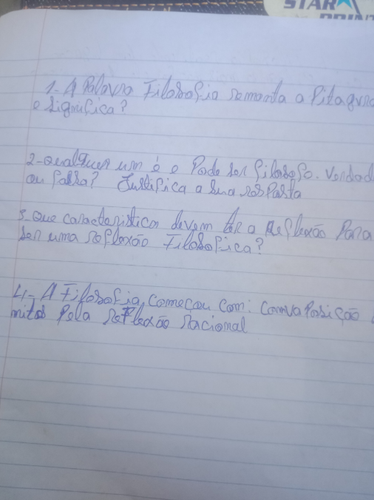 STAR
1- A Palavra Filosofia remonta a Pitagora
e significa?
2- qualquer um é e Pode ser filosofo. Verdade
ou falsa? Justifica a sua resPosta
3- Que caracteristicas devem ter a Reflexão Para
ser uma reflexão Filosofica?
4- A Filosofia começou com:
mitos Pela reflexão racional